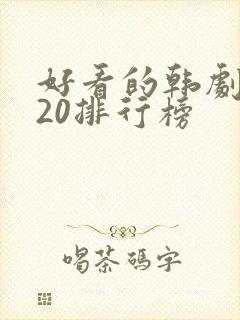 好看的韩劇
20排行榜
喝茶碼字